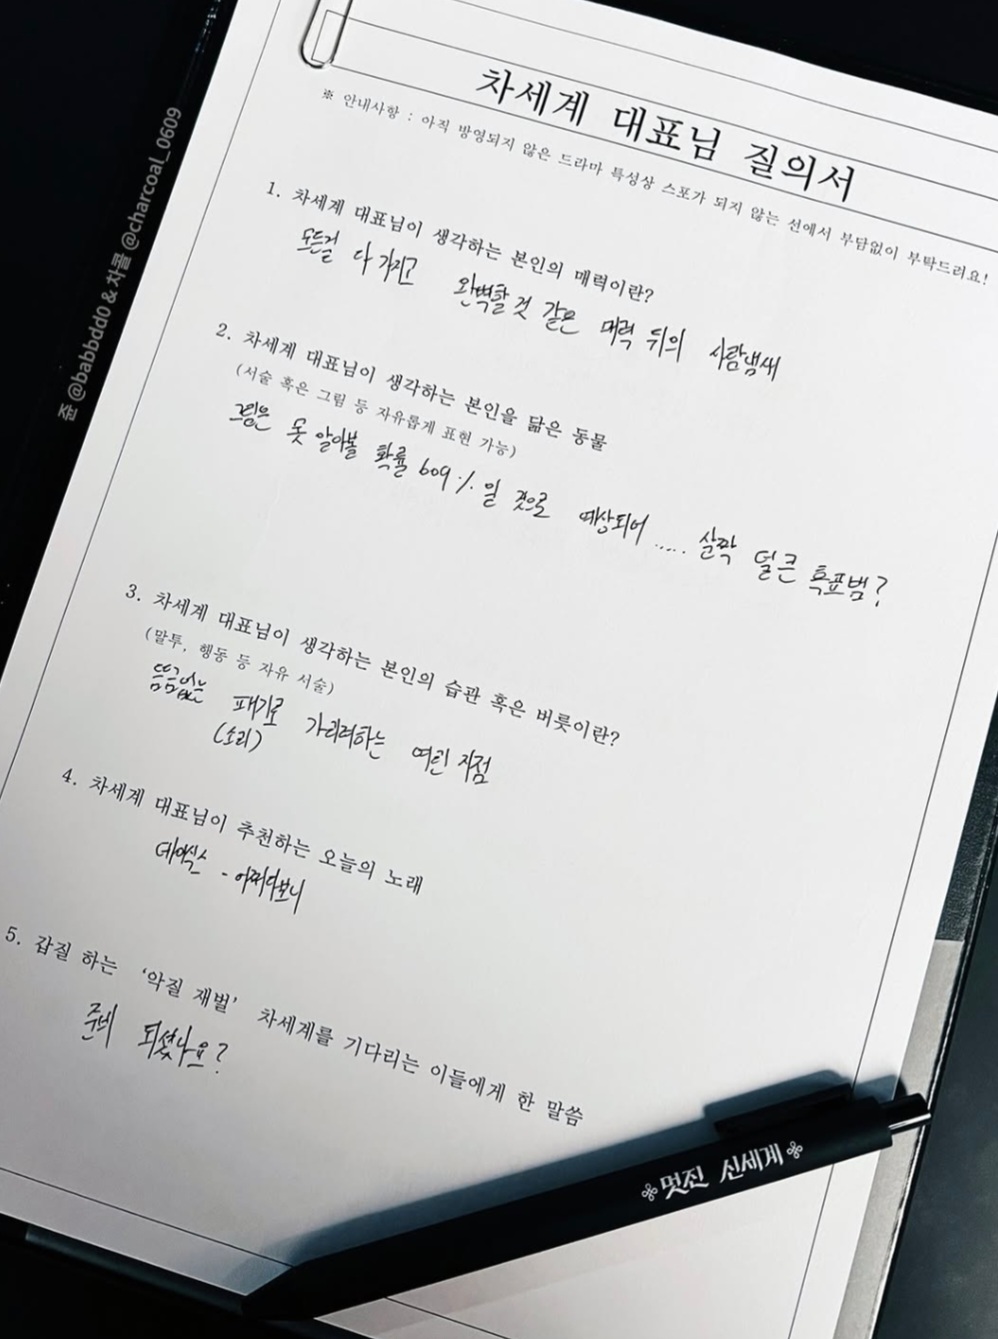 차세계 대표님 질의서
※ 안내사항 : 아직 방영되지 않은 드라마 특성상 스포가 되지 않는 선에서 부담없이 부탁드려요!
1. 차세계 대표님이 생각하는 본인의 매력이란?
모든걸 다 가지고 완벽할 것 같은 매력 뒤의 사람냄새
2. 차세계 대표님이 생각하는 본인을 닮은 동물
(서술 혹은 그림 등 자유롭게 표현 가능)
그림은 못 알아볼 확률 609% 일 것으로 예상되어 ..... 살짝 덜 큰 흑표범?
3. 차세계 대표님이 생각하는 본인의 습관 혹은 버릇이란?
(말투, 행동 등 자유 서술)
뜬금없는 패기로 가리려하는 여린 지점
(소리)
4. 차세계 대표님이 추천하는 오늘의 노래
데이식스 - 어쩌다보니
5. 갑질 하는 '악질 재벌' 차세계를 기다리는 이들에게 한 말씀
준비 되셨나요?
멋진 신세계
쥰 @babbdd0 & 차콜 @charcoal_0609